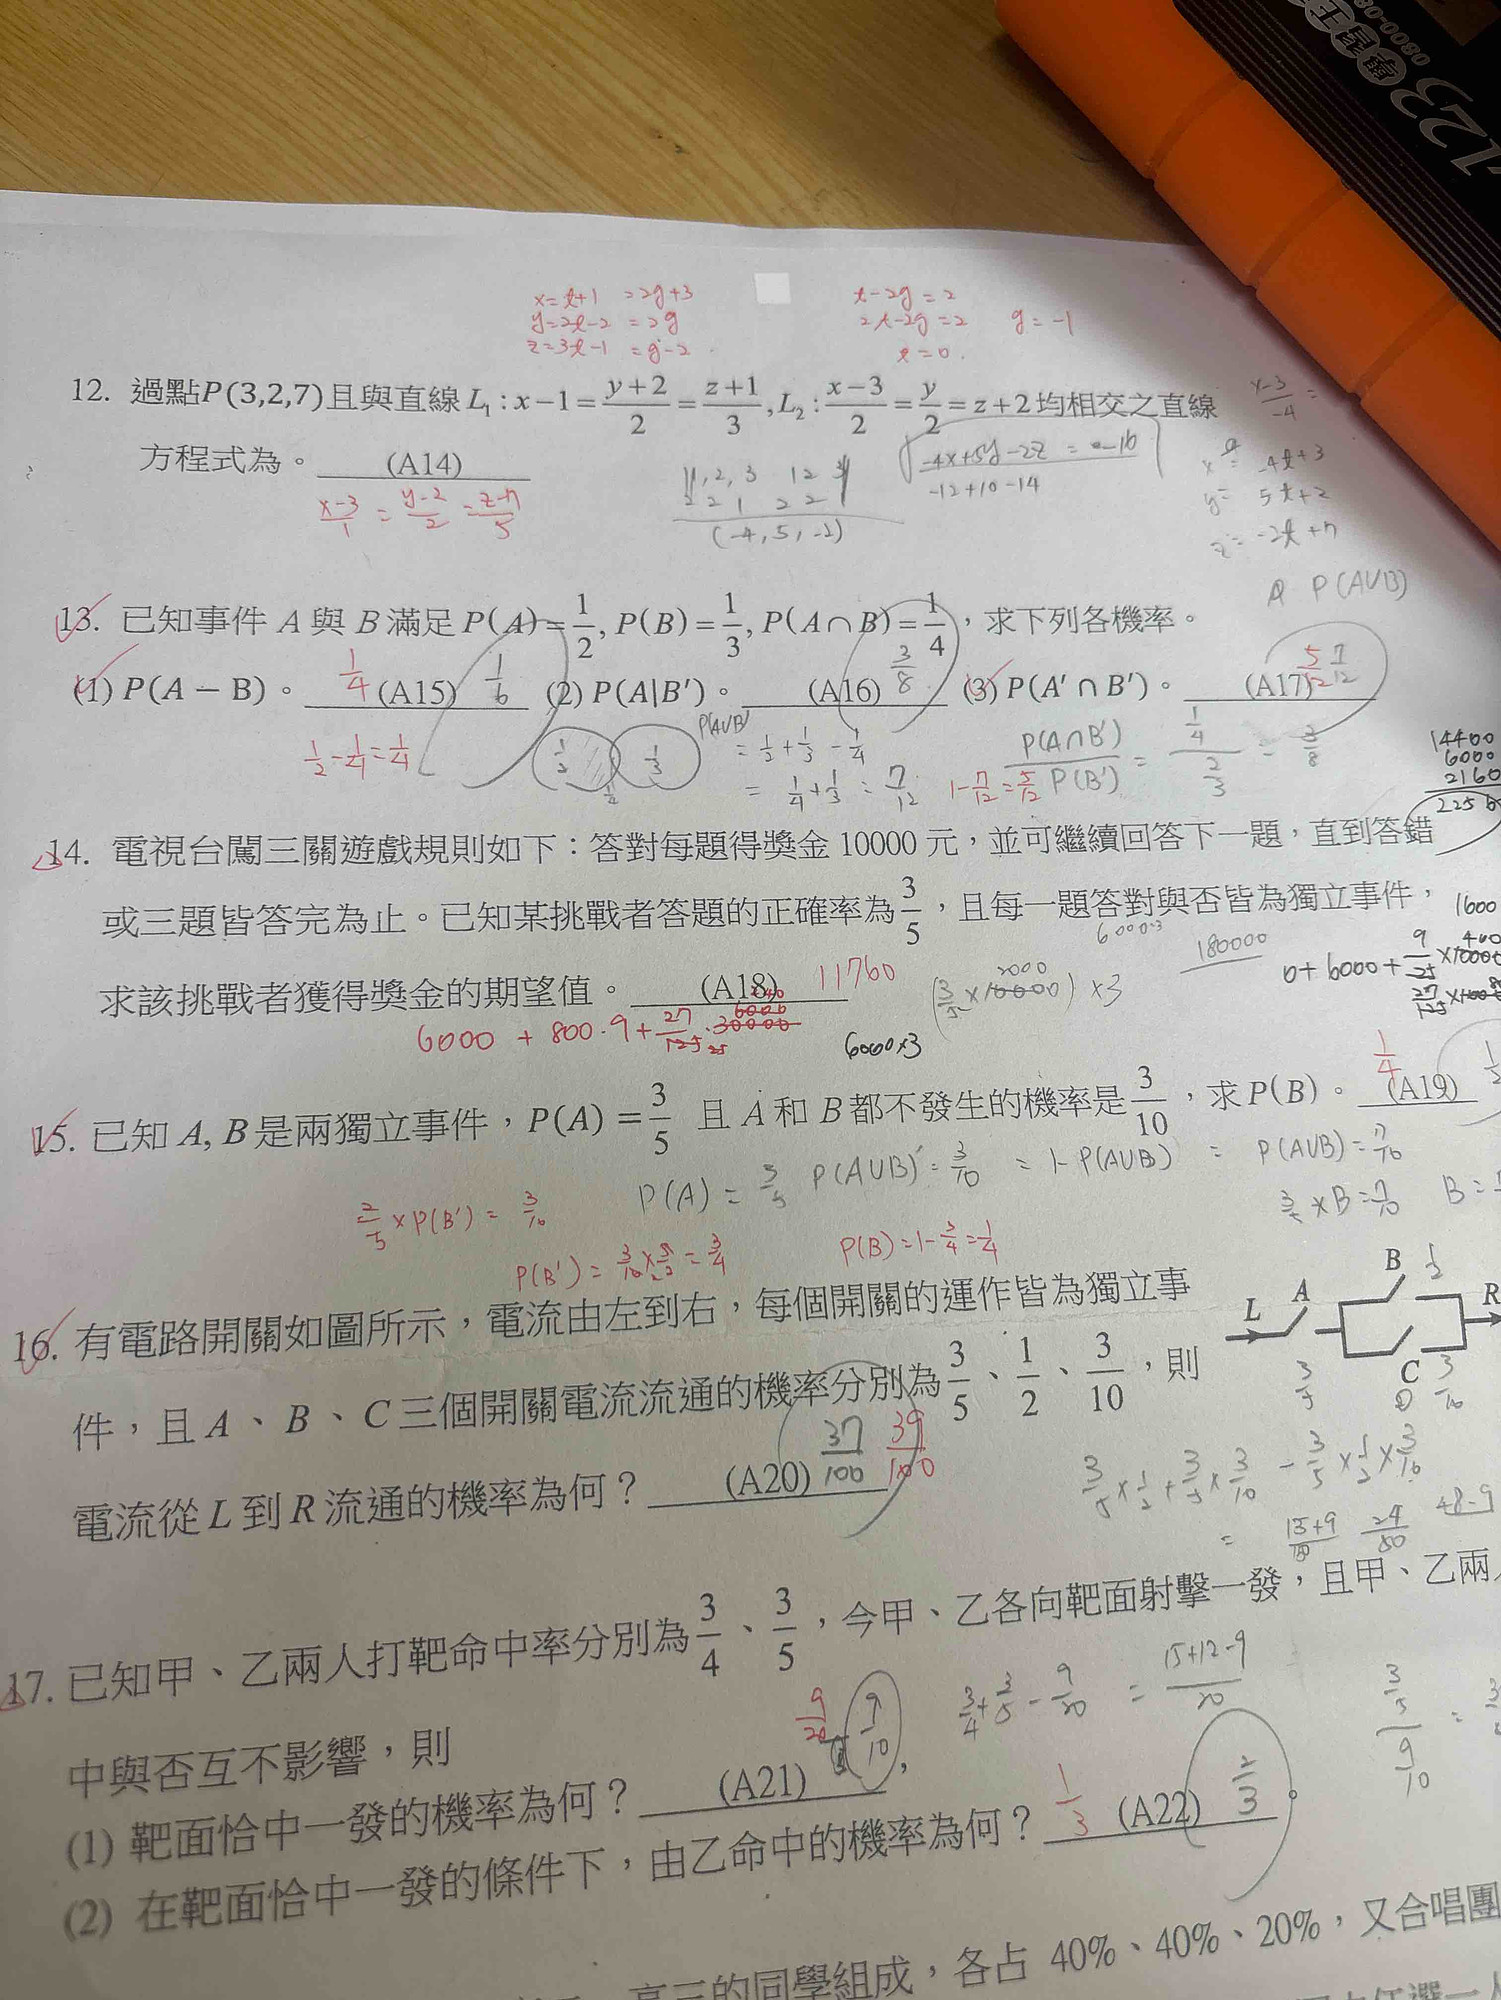 x=t+1 =2g+3
y=2t-2 =2g
z=3t-1 =g-2
t-2g=2
2t-2g=2 g=-1
t=0.
12. 過點P(3,2,7)且與直線 L₁: x−1= (y+2)/2 = (z+1)/3, L₂: (x−3)/2 = y/2 = z+2均相交之直線
方程式為。 (A14)
(x-3)/1 = (y-2)/2 = (z-7)/5
(-4, 5, -2)
-4x+5y-2z = -16
-12+10-14
-4t+3
y= 5t+2
z= -2t+7
P(AUB)
13. 已知事件 A 與 B 滿足 P(A)= 1/2, P(B)= 1/3, P(A∩B)= 1/4,求下列各機率。
(1) P(A − B)。 1/4 (A15) 1/6 (2) P(A|B′)。 (A16) 3/8 (3) P(A′ ∩ B′)。 (A17) 5/12 7/12
1/2 - 1/4 = 1/4
1/2 1/3
P(AUB) = 1/2 + 1/3 - 1/4
= 1/4 + 1/3 = 7/12
1 - 7/12 = 5/12
P(A∩B')/P(B') = (1/4)/(2/3) = 3/8
14400
6000
2160
14. 電視台闖三關遊戲規則如下:答對每題得獎金 10000 元,並可繼續回答下一題,直到答錯
或三題皆答完為止。已知某挑戰者答題的正確率為 3/5 ,且每一題答對與否皆為獨立事件,
求該挑戰者獲得獎金的期望值。 (A18) 11760
6000 + 800·9 + 27/125 · 30000
6000×3
(3/5 × 10000) × 3
180000
15. 已知 A, B 是兩獨立事件,P(A) = 3/5 且 A 和 B 都不發生的機率是 3/10 ,求 P(B)。 1/4 (A19)
P(A) = 3/5 P(AUB)' = 3/10 = 1-P(AUB) = P(AUB) = 7/10
3/5 × B = 7/10
2/5 × P(B') = 3/10
P(B') = 3/10 × 5/2 = 3/4
P(B) = 1 - 3/4 = 1/4
16. 有電路開關如圖所示,電流由左到右,每個開關的運作皆為獨立事
件,且 A、B、C 三個開關電流流通的機率分別為 3/5、1/2、3/10,則
電流從 L 到 R 流通的機率為何? (A20) 37/100 39/100
L A B C R
1/2
3/5
3/10
3/5 × 1/2 + 3/5 × 3/10 - 3/5 × 1/2 × 3/10
17. 已知甲、乙兩人打靶命中率分別為 3/4、3/5,今甲、乙各向靶面射擊一發,且甲、乙兩
中與否互不影響,則
(1) 靶面恰中一發的機率為何? (A21) 9/20 9/10 ,
3/4 + 3/5 - 9/20 = (15+12-9)/20
(2) 在靶面恰中一發的條件下,由乙命中的機率為何? 1/3 (A22) 2/3 。
高三的同學組成,各占 40%、40%、20%,又合唱團